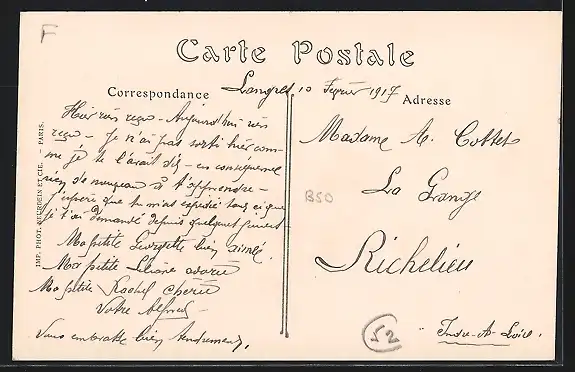 F
Carte Postale
Correspondance
Langres 10 Février 1917
Adresse
Hier rien reçu - Aujourd'hui rien
reçu - Je n'ai pas sorti hier com-
me je te l'avait dis - en conséquence
rien de nouveau à t'apprendre -
J'espère que tu m'as expédié tous ce que
je t'ai demandé depuis quelques jours
Ma petite Georgette bien aimée.
Ma petite Liliane adorée
Ma petite Rachel chérie
Votre Alfred -
Vous embrasse bien tendrement.
IMP. PHOT. NEURDEIN ET CIE. - PARIS.
Madame A. Cottet
La Grange
Richelieu
Indre-&-Loire.
B50
52